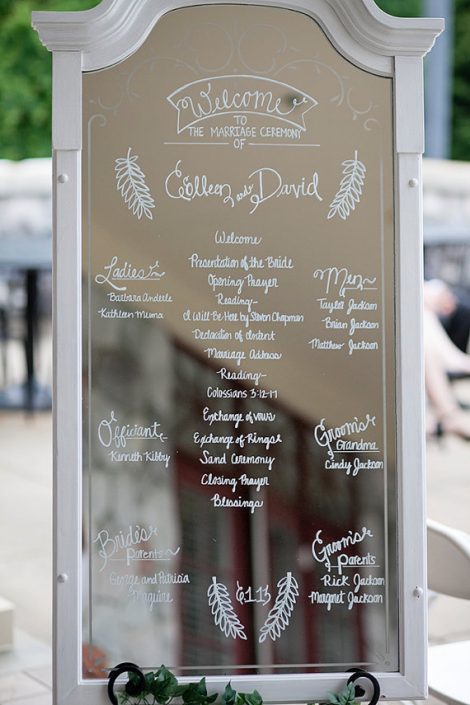 Welcome
TO
THE MARRIAGE CEREMONY
OF
Colleen and David
Welcome
Presentation of the Bride
Opening Prayer
Reading-
I Will Be Here by Steven Chapman
Declaration of Intent
Marriage Address
Reading-
Colossians 3:12-17
Exchange of vows
Exchange of Rings
Sand Ceremony
Closing Prayer
Blessings
Ladies
Barbara Anderle
Kathleen Mema
Men
Taylor Jackson
Brian Jackson
Matthew Jackson
Officiant
Kenneth Kibby
Groom's
Grandma
Cindy Jackson
Bride's
Parents
George and Patricia
Maguire
Groom's
Parents
Rick Jackson
Margret Jackson